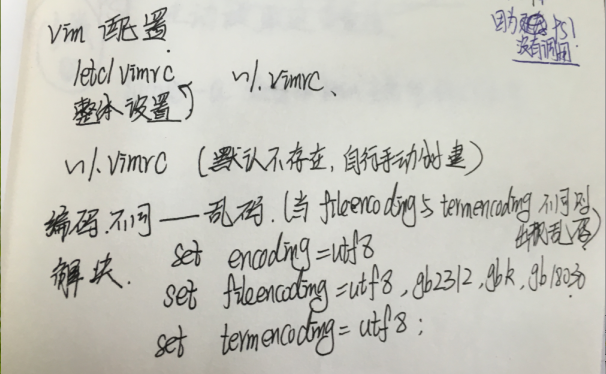 vim 配置.
/etc/vimrc ~/.vimrc、
整体设置
~/.vimrc (默认不存在,自行手动创建)
编码不同——乱码.(当fileencoding与termencoding不同时
出现乱码)
解决. set encoding=utf8
set fileencoding=utf8,gb2312,gbk,gb18030
set termencoding=utf8;
因为
没有调用.